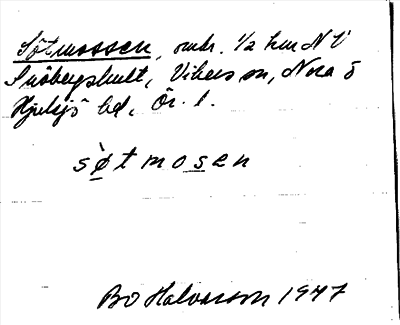 Sötmossen, omr. 1/2 km NV
Snöbergshult, Vikers sn, Nora o
Hjulsjö bd, Ör. l.
sö̀tmosen
Bo Halvarson 1947